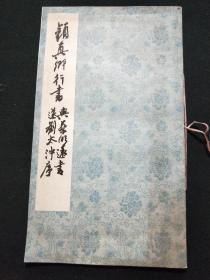 顔真卿行書
與蔡明遠書
送劉太沖序